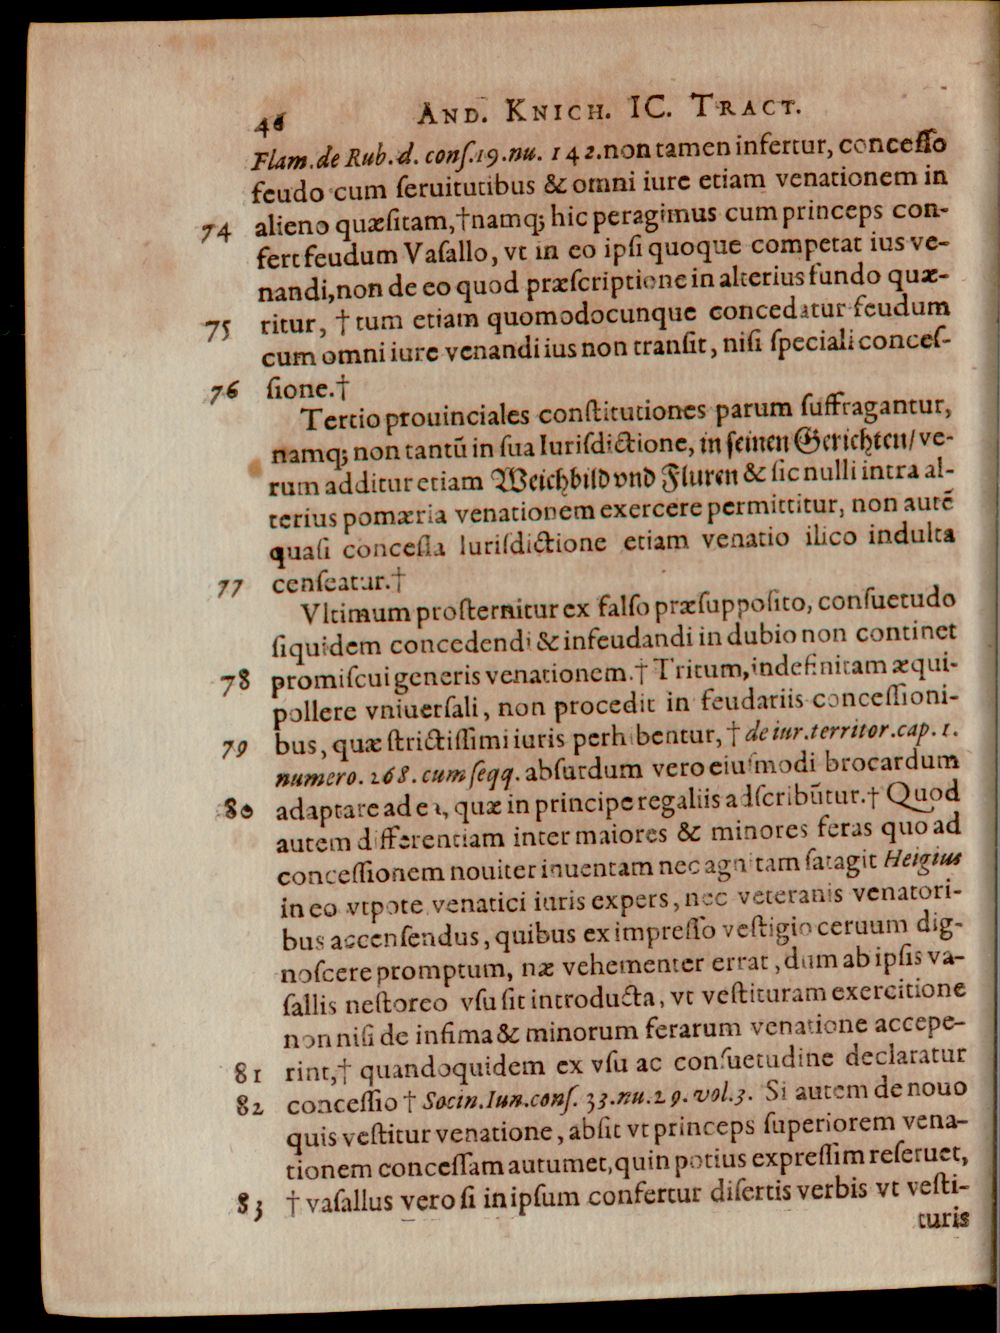 46 AND. KNICH. IC. TRACT.
Flam. de Rub. d. conſ. 19. nu. 142. non tamen infertur, conceſſo
feudo cum ſeruitutibus & omni iure etiam venationem in
74 alieno quæſitam, † namq; hic peragimus cum princeps con-
fert feudum Vaſallo, vt in eo ipſi quoque competat ius ve-
nandi, non de eo quod præſcriptione in alterius fundo quæ-
75 ritur, † tum etiam quomodocunque concedatur feudum
cum omni iure venandi ius non tranſit, niſi ſpeciali conceſ-
76 ſione. †
Tertio prouinciales conſtitutiones parum ſuffragantur,
namq; non tantũ in ſua Iuriſdictione, in ſeinen Gerichten/ ve-
rum additur etiam Weichbild vnd Fluren & ſic nulli intra al-
terius pomæria venationem exercere permittitur, non autẽ
quaſi conceſſa Iuriſdictione etiam venatio ilico indulta
77 cenſeatur. †
Vltimum proſternitur ex falſo præſuppoſito, conſuetudo
ſiquidem concedendi & infeudandi in dubio non continet
78 promiſcui generis venationem. † Tritum, indefinitam æqui-
pollere vniuerſali, non procedit in feudariis conceſſioni-
79 bus, quæ ſtrictiſſimi iuris perhibentur, † de iur. territor. cap. 1.
numero. 268. cum ſeqq. abſurdum vero eiuſmodi brocardum
80 adaptare ad ea, quæ in principe regaliis adſcribũtur. † Quod
autem differentiam inter maiores & minores feras quo ad
conceſſionem nouiter inuentam nec agnitam ſatagit Heigius
in eo vtpote venatici iuris expers, nec veteranis venatori-
bus accenſendus, quibus ex impreſſo veſtigio ceruum dig-
noſcere promptum, næ vehementer errat, dum ab ipſis va-
ſallis neſtoreo vſu ſit introducta, vt veſtituram exercitione
non niſi de infima & minorum ferarum venatione accepe-
81 rint, † quandoquidem ex vſu ac conſuetudine declaratur
82 conceſſio † Socin. Iun. conſ. 33. nu. 29. vol. 3. Si autem de nouo
quis veſtitur venatione, abſit vt princeps ſuperiorem vena-
tionem conceſſam autumet, quin potius expreſſim reſeruet,
83 † vaſallus vero ſi in ipſum confertur diſertis verbis vt veſti-
turis